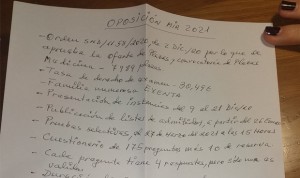 OPOSICIÓN MIR 2021
- Orden SND/1158/2020 de 2 Dic/20 por la que se
aprueba la oferta de Plazas y convocatoria de Plazas
Medicina - 7989 plazas
- Tasa de derecho de examen - 30,49€
- Familia numerosa EXENTA
- Presentación de instancias del 9 al 21 Dic/20
- Publicación de listas de admitidos, a partir del 26 Enero
- Pruebas selectivas, el 27 de Marzo del 2021 a las 15 horas
- Cuestionario de 175 preguntas más 10 de reserva
- Cada pregunta tiene 4 respuestas, pero sólo una es
válida